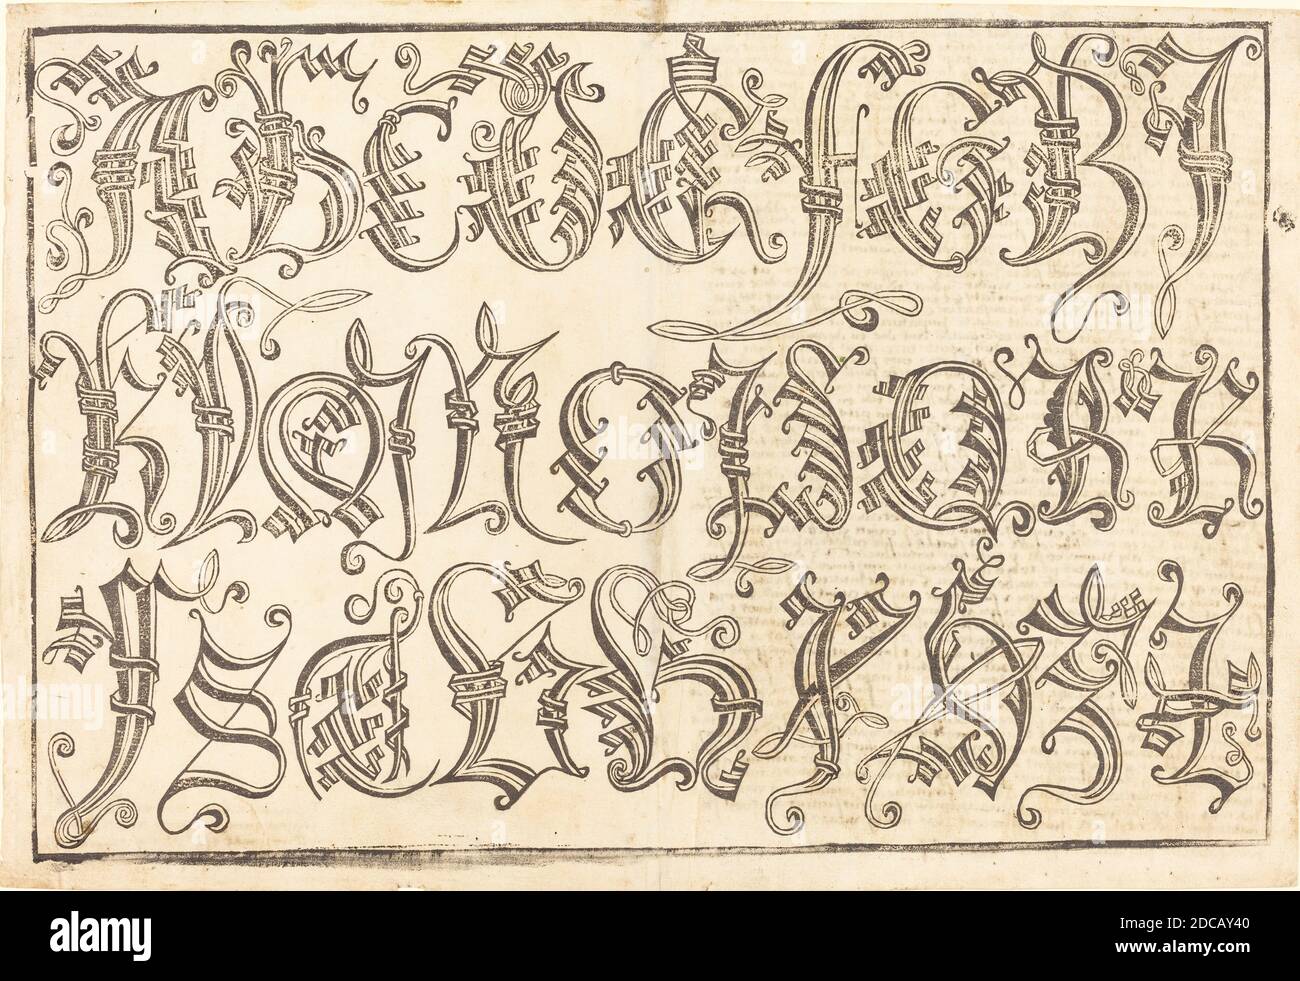 A B C D E F G H I
K L M N O P Q R R
T S T U V X Y Z Z
alamy
Image ID: 2DCAY40
www.alamy.com